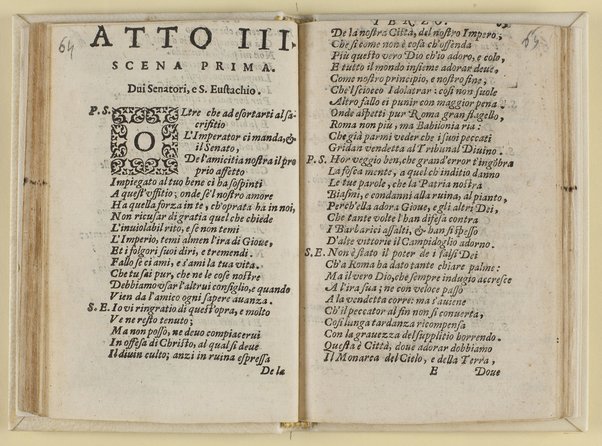 64
ATTO III.
SCENA PRIMA.
Dui Senatori, e S. Eustachio.
P.S. OLtre che ad esortarti al sa-
crifitio
L'Imperator ci manda, &
il Senato,
De l'amicitia nostra il pro
prio affetto
Impiegato al tuo bene ci ha sospinti
A quest'vffitio; onde se'l nostro amore
Ha quella forza in te, ch'oprata ha in noi,
Non ricusar di gratia quel che chiede
L'inuiolabil rito, e se non temi
L'Imperio, temi almen l'ira di Gioue,
Et i folgori suoi diri, e tremendi.
Fallo se ci ami, e s'ami la tua vita.
Che tu sai pur, che ne le cose nostre
Debbiamo vsar l'altrui consiglio, e quando
Vien da l'amico ogni sapere auanza.
S.E. Io vi ringratio di quest'opra, e molto
Ve ne resto tenuto;
Ma non posso, ne deuo compiacerui
In offesa di Christo, al qual si deue
Il diuin culto; anzi in ruina espressa
De la
TERZO.
64
De la nostra Città, del nostro Impero,
Che si come non è cosa ch'offenda
Più questo vero Dio ch'io adoro, e colo,
E tutto il mondo insieme adorar deue,
Come nostro principio, e nostro fine,
Che'l sciocco Idolatrar: così non suole
Altro fallo ei punir con maggior pena.
Onde aspetti pur Roma gran flagello,
Roma non più, ma Babilonia ria:
Che già parmi veder che i suoi peccati
Gridan vendetta al Tribunal Diuino.
P.S. Hor veggio ben, che grand'error t'ingōbra
La fosca mente, a quel ch'inditio danno
Le tue parole, che la Patria nostra
Biasmi, e condanni alla ruina, al pianto,
Perch'ella adora Gioue, e gli altri Dei,
Che tante volte l'han difesa contra
I Barbarici assalti, & han sì spesso
D'alte vittorie il Campidoglio adorno.
S.E. Non è stato il poter de i falsi Dei
Ch'a Roma ha dato tante chiare palme:
Ma il vero Dio, che sempre indugio accresce
A l'ira sua; ne con veloce passo
A la vendetta corre: ma s'auiene
Ch'il peccator al fin non si conuerta,
Così lunga tardanza ricompensa
Con la grauezza del supplitio horrendo.
Questa è Città, doue adorar dobbiamo
Il Monarca del Cielo, e della Terra,
E Doue